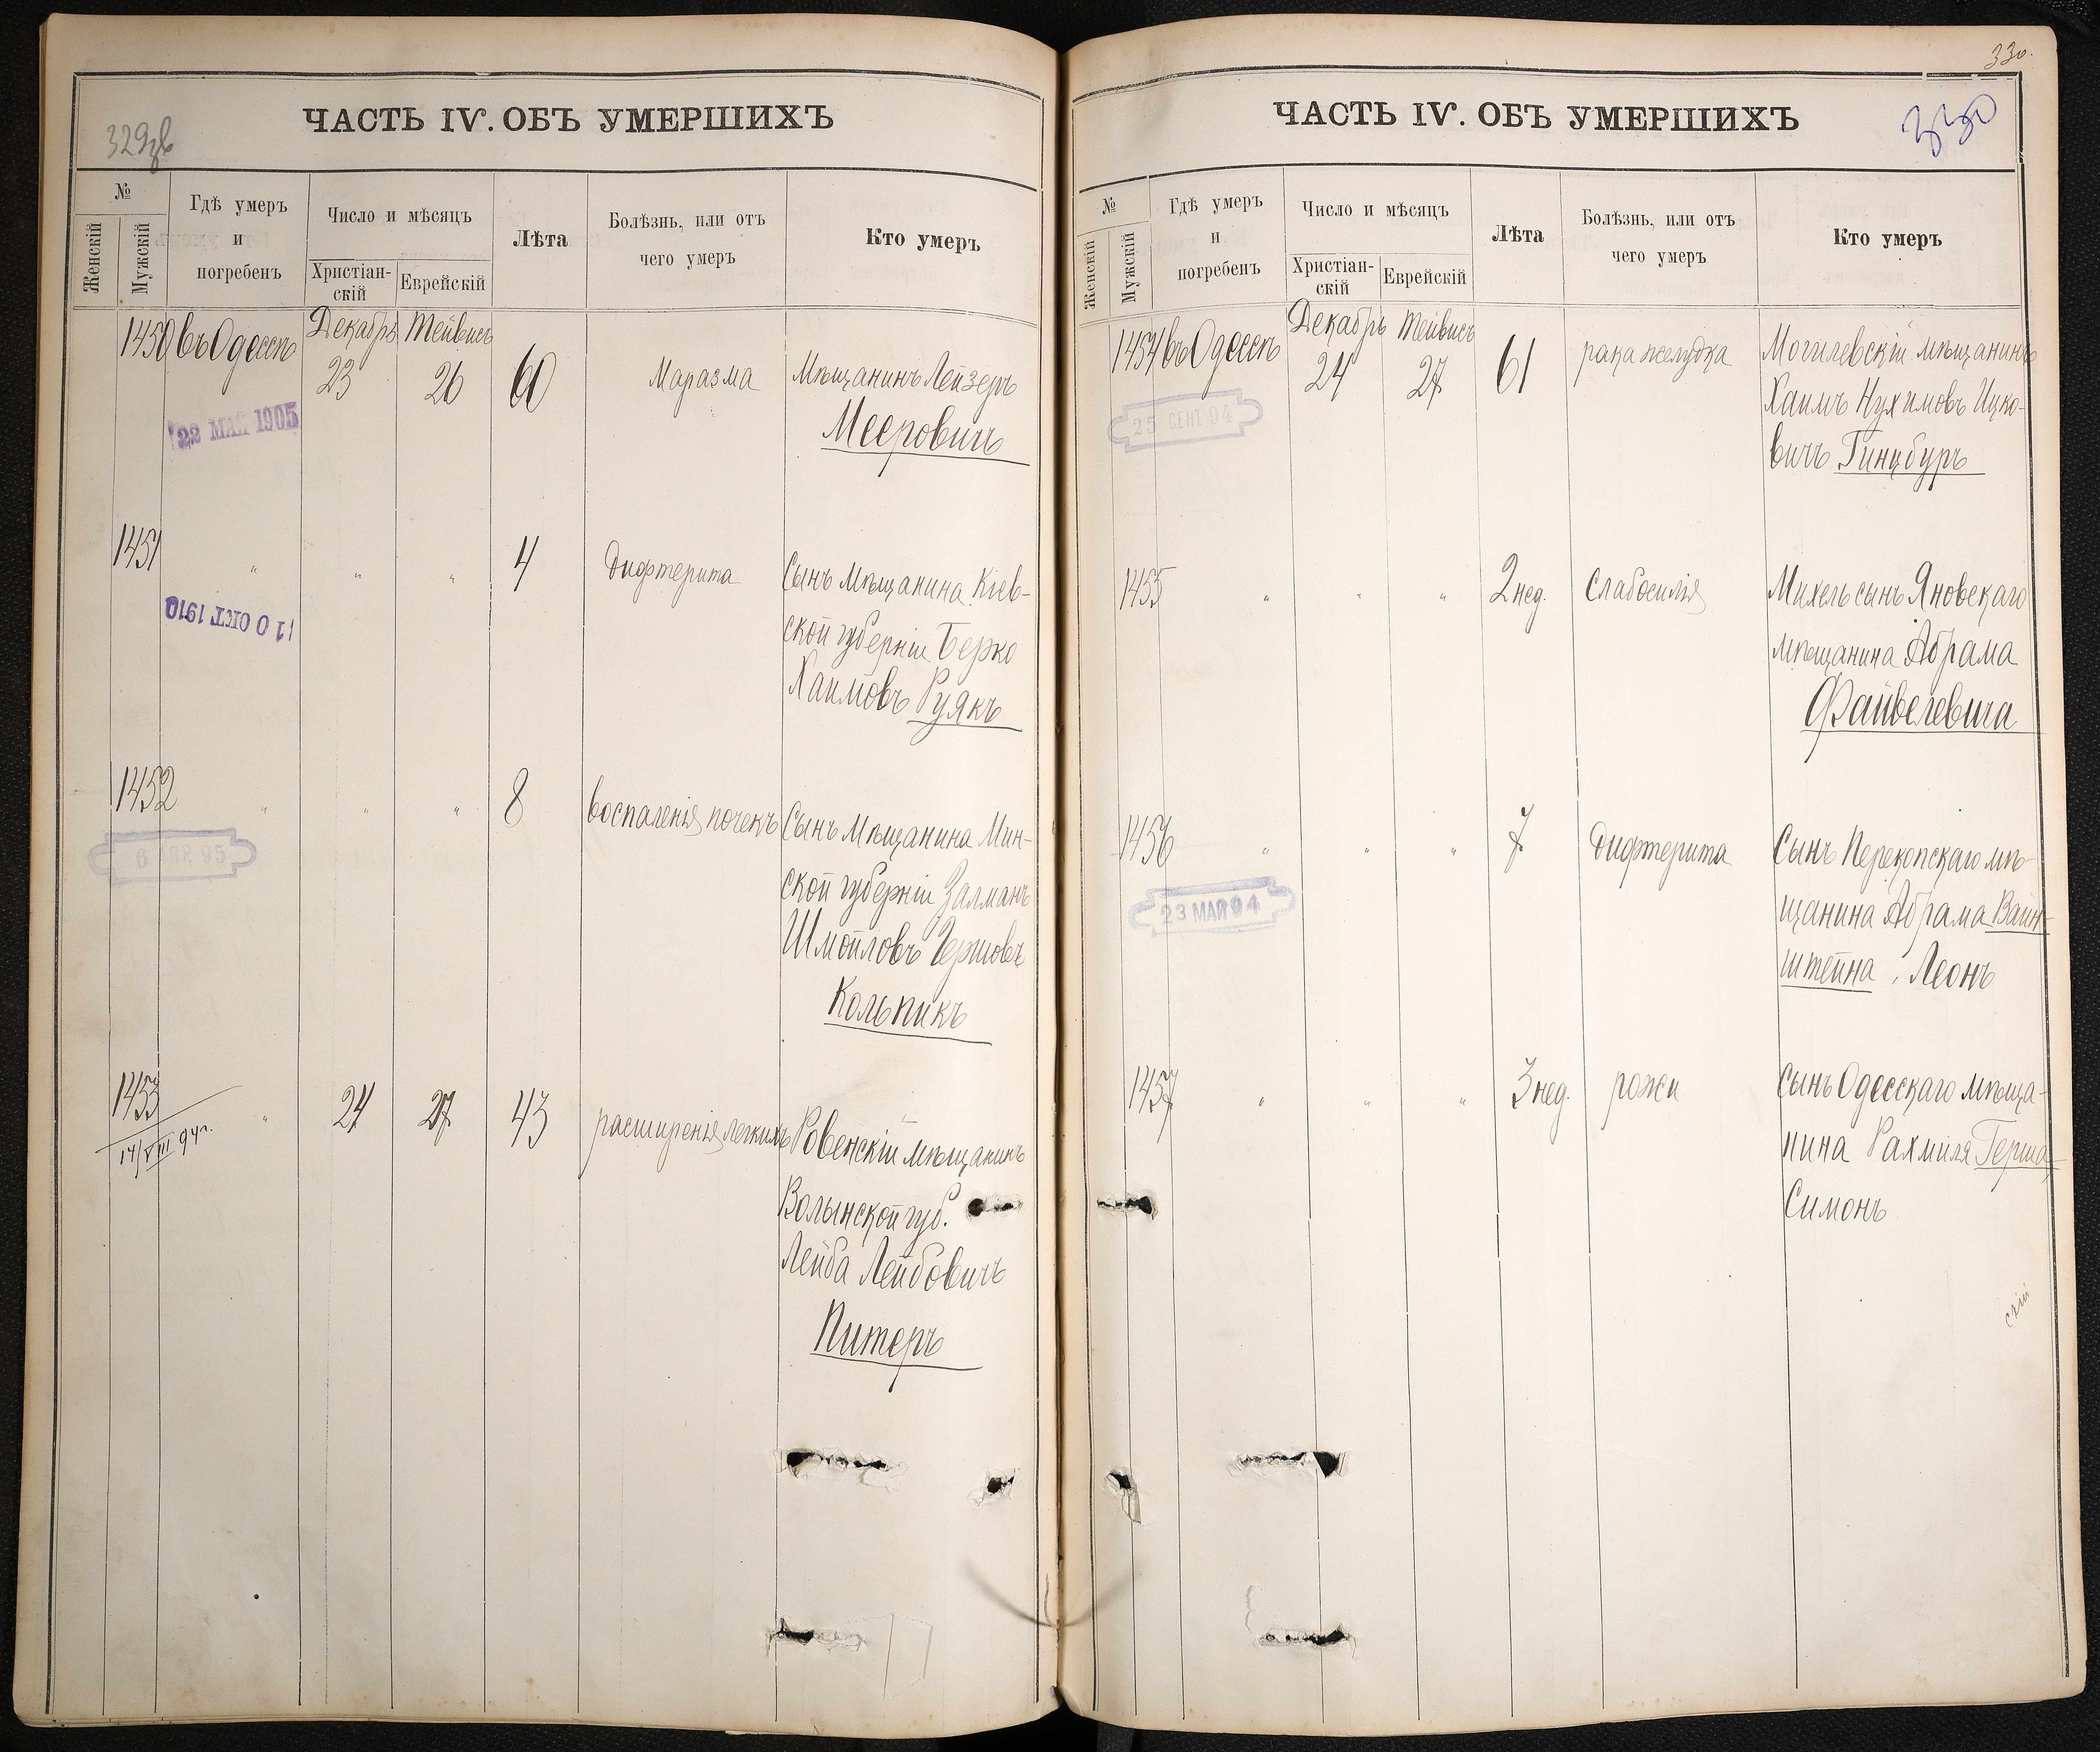 329зв
ЧАСТЬ IV. ОБЪ УМЕРШИХЪ
№
Женскій
Мужскій
Гдѣ умеръ
и
погребенъ
Число и мѣсяцъ
Христіан-
скій
Еврейскій
Лѣта
Болѣзнь, или отъ
чего умеръ
Кто умеръ
1450 въ Одессѣ Декабрь 23 Тейвисъ 26 60 Маразма Мѣщанинъ Лейзеръ
Мееровичъ
22 МАЙ 1905
1451 " " " 4 дифтерита Сынъ мѣщанина Кіев-
ской губерніи Берко
Хаимовъ Руякъ
10 ОКТ 1910
1452 " " " 8 воспаленія почекъ Сынъ мѣщанина Мин-
ской губерніи Залманъ
Шмойловъ Гершовъ
Кольникъ
6 АПР 95
1453 " 24 27 43 расширенія легкихъ Ровенскій мѣщанинъ
Волынской губ.
Лейба Лейбовичъ
Питеръ
14/VIII 94 г.
330.
330
ЧАСТЬ IV. ОБЪ УМЕРШИХЪ
№
Женскій
Мужскій
Гдѣ умеръ
и
погребенъ
Число и мѣсяцъ
Христіан-
скій
Еврейскій
Лѣта
Болѣзнь, или отъ
чего умеръ
Кто умеръ
1454 въ Одессѣ Декабрь 24 Тейвисъ 27 61 рака желудка Могилевскій мѣщанинъ
Хаимъ Нухимовъ Ицко-
вичъ Гинцбуръ
25 СЕНТ 94
1455 " " " 2 нед. слабосилія Михель сынъ Яновскаго
мѣщанина Абрама
Файвелевича
1456 " " " 7 дифтерита Сынъ Перекопскаго мѣ-
щанина Абрама Вайн-
штейна, Леонъ
23 МАЙ 94
1457 " " " 3 нед. рожи сынъ Одесскаго мѣща-
нина Рахмиля Герша,
Симонъ
скій